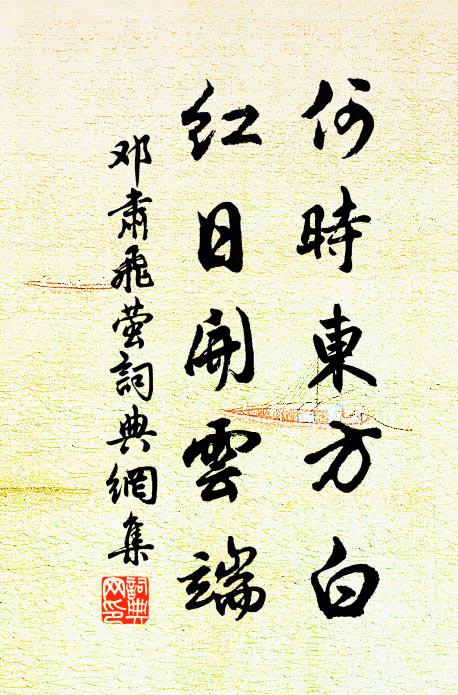 何時東方白
紅日開雲端
邓肅飛螢詞典網集
詞典
网印